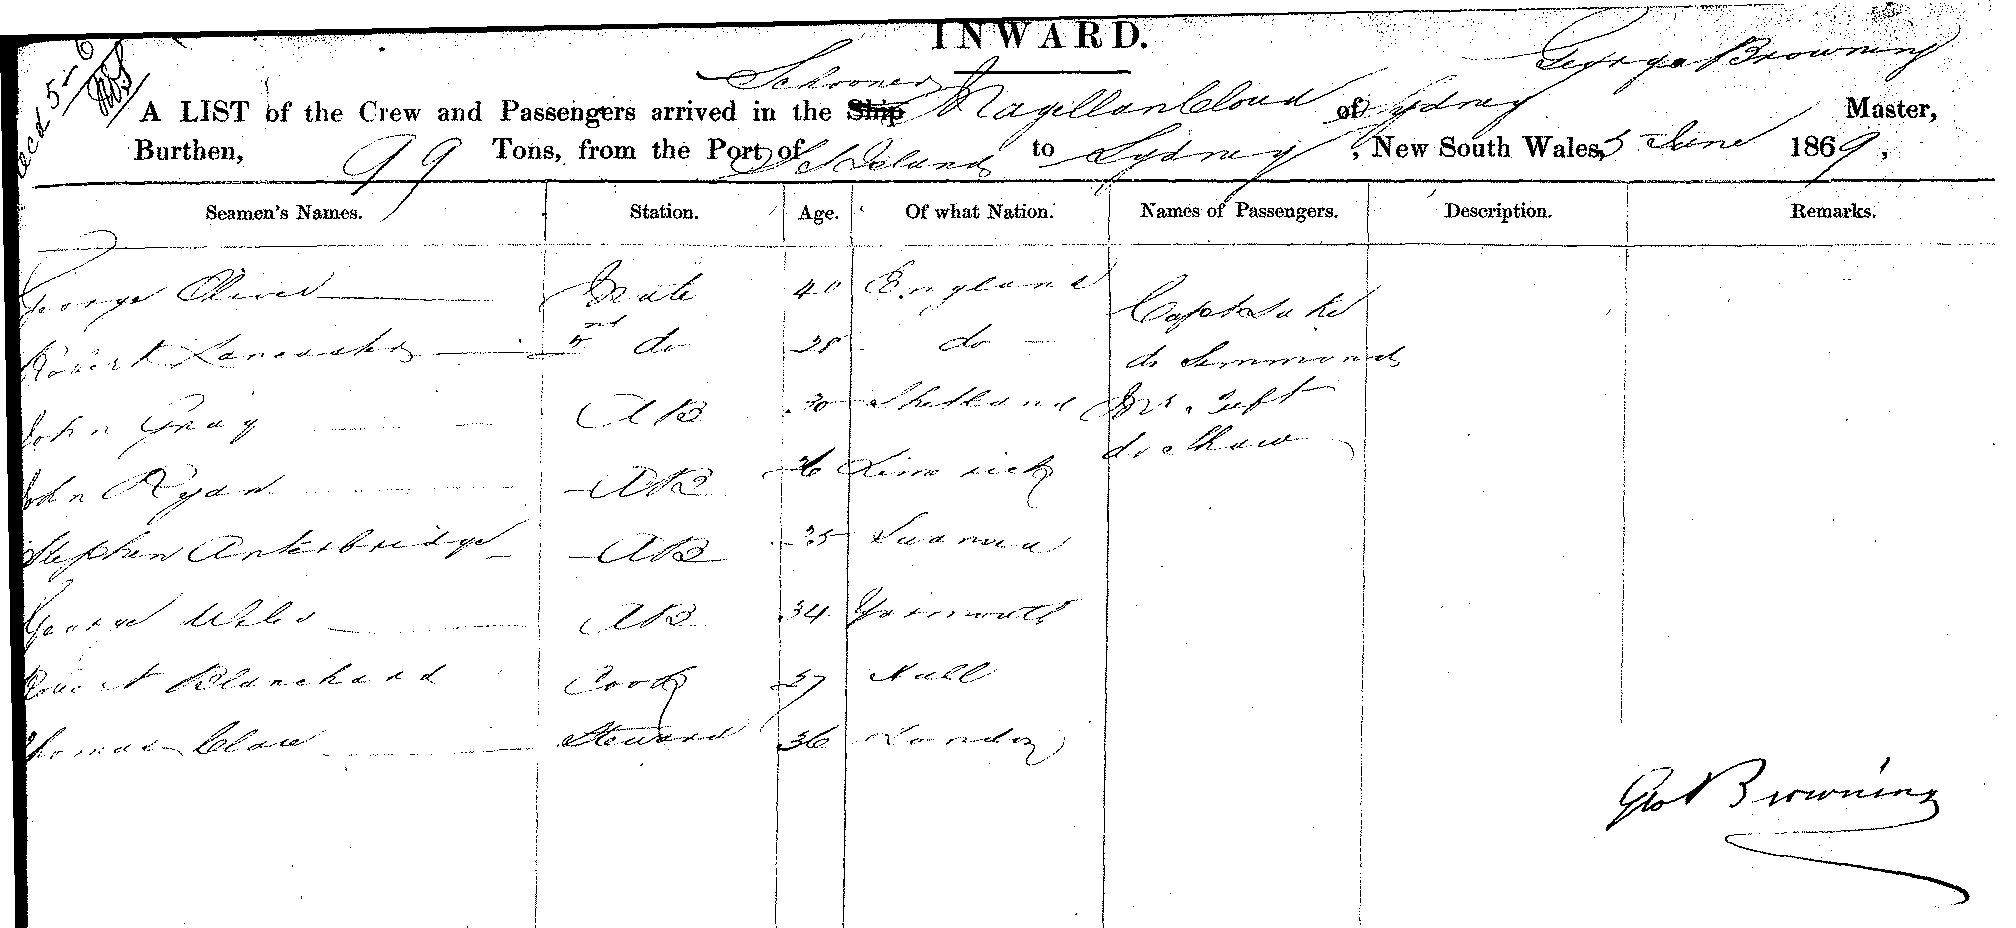 INWARD.
Recd 5-6
Schooner George Browning
A LIST of the Crew and Passengers arrived in the Ship Magellan Cloud of Sydney Master,
Burthen, 99 Tons, from the Port of S S Island to Sydney, New South Wales, 5 June 1869.
Seamen's Names. Station. Age. Of what Nation. Names of Passengers. Description. Remarks.
George Oliver Mate 40 England Capt Luke
Robert Lancaster 2nd do 28 do do Simmonds
John Gray AB 30 Shetland Mr Tuft
John Ryan AB 36 Limrick do Shaw
Stephen Anterbridge AB 25
George Wiles AB 34 Yarmouth
Robert Blanchard Cook 27 Hull
Thomas Clare Steward 36 London
Geo Browning